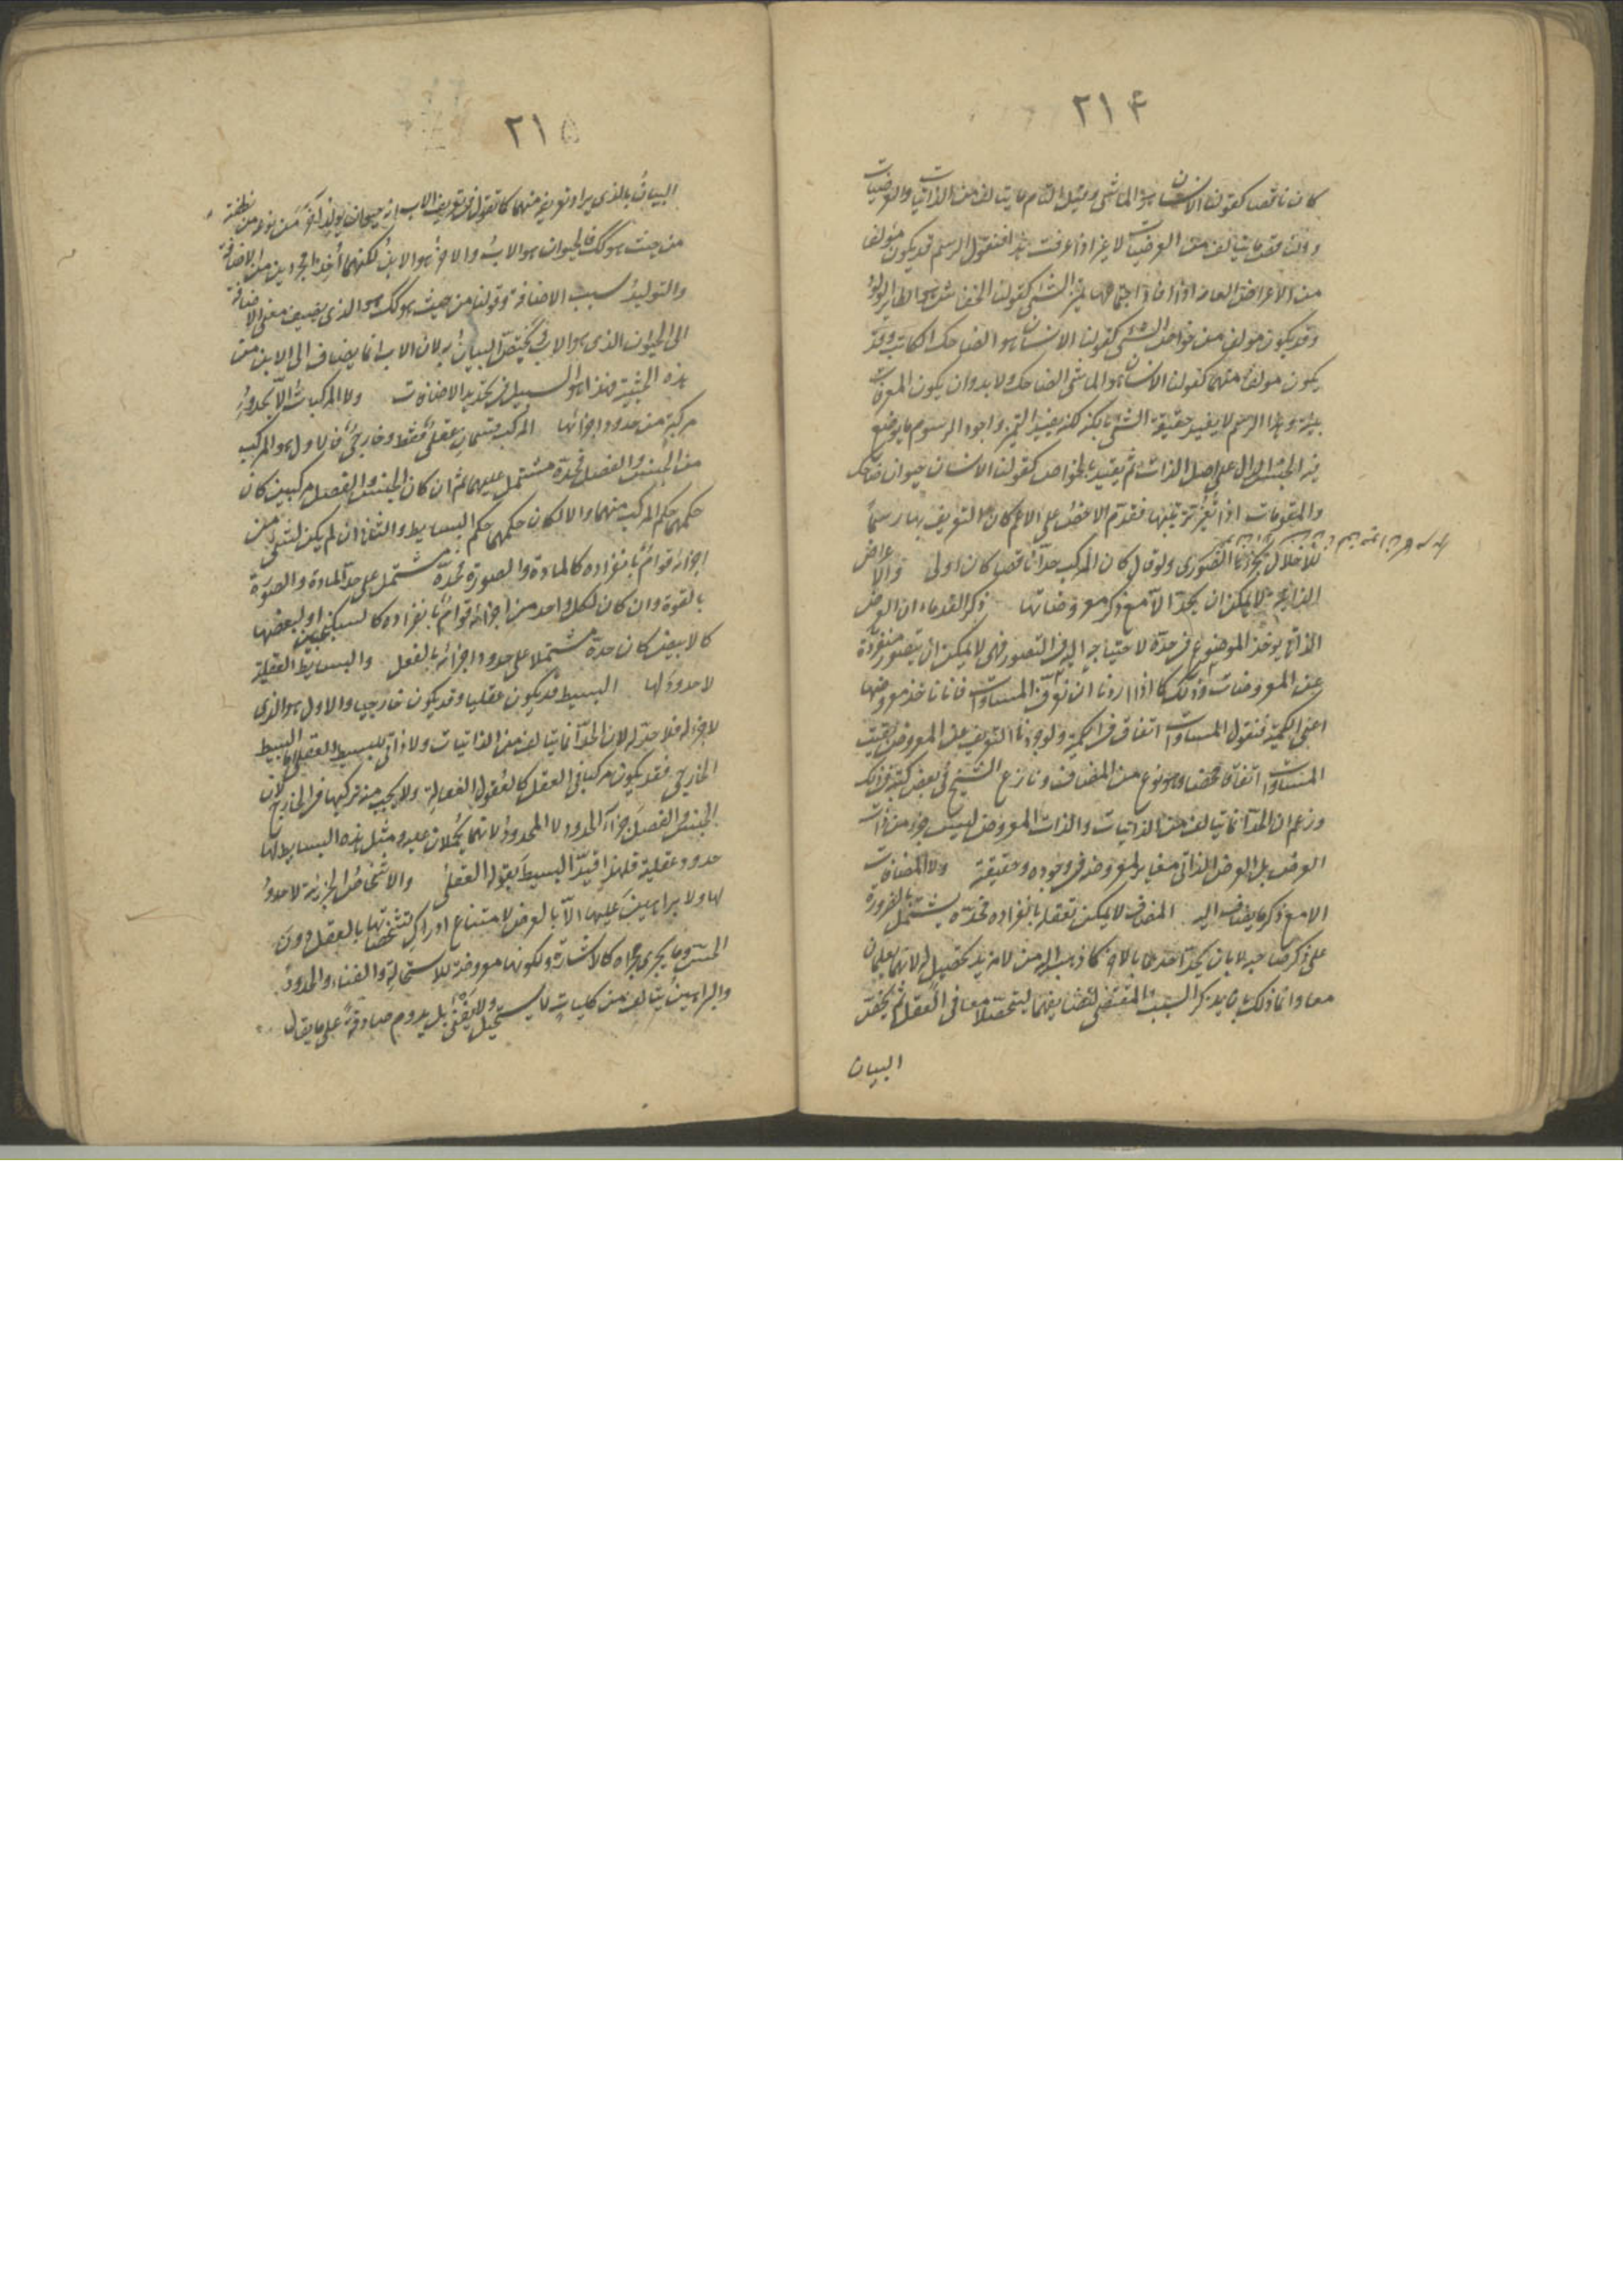 ٢١۴
كان ناقصا كقولنا الانسان هو الماشى وقيل التام ما يتالف من الذاتيات والعرضيات
والناقص ما يتالف من العرضيات لا غير اذا عرفت هذا فنقول الرسم قد يكون مؤلفا
من الاعراض العامة اذا افاد اجتماعها تميز الشئ كقولنا الخفاش هو الطاير الولود
وقد يكون مولفا من خواص الشئ كقولنا الانسان هو الضاحك الكاتب وقد
يكون مولفا منهما كقولنا الانسان هو الماشى الضاحك ولا بد وان يكون المعرفات
بينة وهذا الرسم لا يفيد حقيقة الشئ بالكنه لكنه يفيد التميز واجود الرسوم ما يوضع
فيه الجنس الدال على اصل الذات ثم يقيد بالخواص كقولنا الانسان حيوان ضاحك
والمقومات اذا تغير ترتيبها فقدم الاخص على الاعم كان التعريف بها رسما
للاخلال بجزئها الصورى ولو قال كان المركب حدا ناقصا كان اولى والاعراض
الذاتية لا يمكن ان يحد الا مع ذكر معروضاتها ذكر القدماء ان العرض
الذاتى يوخذ الموضوع فى حده لاحتياجه اليه فى التصور فهى لا يمكن ان يتصور منفردة
عن المعروضات وذلك كما اذا اردنا ان نعرف المساوات فانا ناخذ معروضها
اعنى الكمية فنقول المساوات اتفاق فى الكمية ولو جردنا التعريف عن المعروض بقيت
المساوات اتفاقا محضا وهو نوع من المضاف ونازع الشيخ فى بعض كتبه فى ذلك
وزعم ان الحد انما يتالف من الذاتيات والذات المعروض ليس جزء من ذات
العرض بل العرض الذاتى مغاير لمعروضه فى وجوده وحقيقته ولا المضافات
الا مع ذكر ما يضاف اليه المضاف لا يمكن تعقله بانفراده فحده يشتمل بالضرورة
على ذكر صاحبه لا بان يحد احدهما بالاخر كما ذهب اليه من لا مزيد تحصيل له لانهما يعلمان
معا وانما ذلك بان يذكر السبب المقتضى لتضايفهما ليتحصلا معا فى العقل ثم يخص
البيان
٢١۵
البيان بالذى يراد تعريفه منهما كما تقول فى تعريف الاب انه حيوان يولد اخر من نوعه من نطفته
من حيث هو كك فالحيوان هو الاب والاخر هو الابن لكنهما اخذا مجردين من الاضافة
والتوليد سبب الاضافة وقولنا من حيث هو كك هو الذى يضيف معنى الاضافة
الى الحيوان الذى هو الاب ويختص البيان به لان الاب انما يضاف الى الابن من
هذه الحيثية فهذا هو السبيل فى تحديد الاضافات ولا المركبات الا بحدود
مركبة من حدود اجزائها المركب قسمان عقلى فقط وخارجى فالاول هو المركب
من الجنس والفصل فحده مشتمل عليهما ثم ان كان الجنس والفصل مركبين كان
حكمهما حكم المركب منهما والا لكان حكمهما حكم البسايط والثانى ان لم يكن لشئ من
اجزائه قوام بانفراده كالمادة والصورة فحده مشتمل على حد المادة والصورة
بالقوة وان كان لكل واحد من اجزائه قوام بانفراده كالسكنجبين او لبعضها
كالابيض كان حده مشتملا على حدود اجزائه بالفعل والبسايط العقلية
لا حدود لها البسيط قد يكون عقليا وقد يكون خارجيا والاول هو الذى
لا جزء له فلا حد له لان الحد انما يتالف من الذاتيات ولا ذاتى للبسيط العقلى اما البسيط
الخارجى فقد يكون مركبا فى العقل كالعقول الفعالة ولا يجب منه تركبها فى الخارج لان
الجنس والفصل جزءا الحد لا المحدود لانهما يحملان عليه ومثل هذه البسايط لها
حدود عقلية فلهذا قيد البسيط بقوله العقلى والاشخاص الجزئية لا حدود
لها ولا براهين عليها الا بالعرض لامتناع ادراك تشخصاتها بالعقل دون
الحس وما يجرى مجراه كالاشارة ولكونها معروضة للاستحالة والفناء والحدود
والبراهين يتالف من كليات لا يستحيل ولا يفنى بل يدوم صادقة على ما يقال